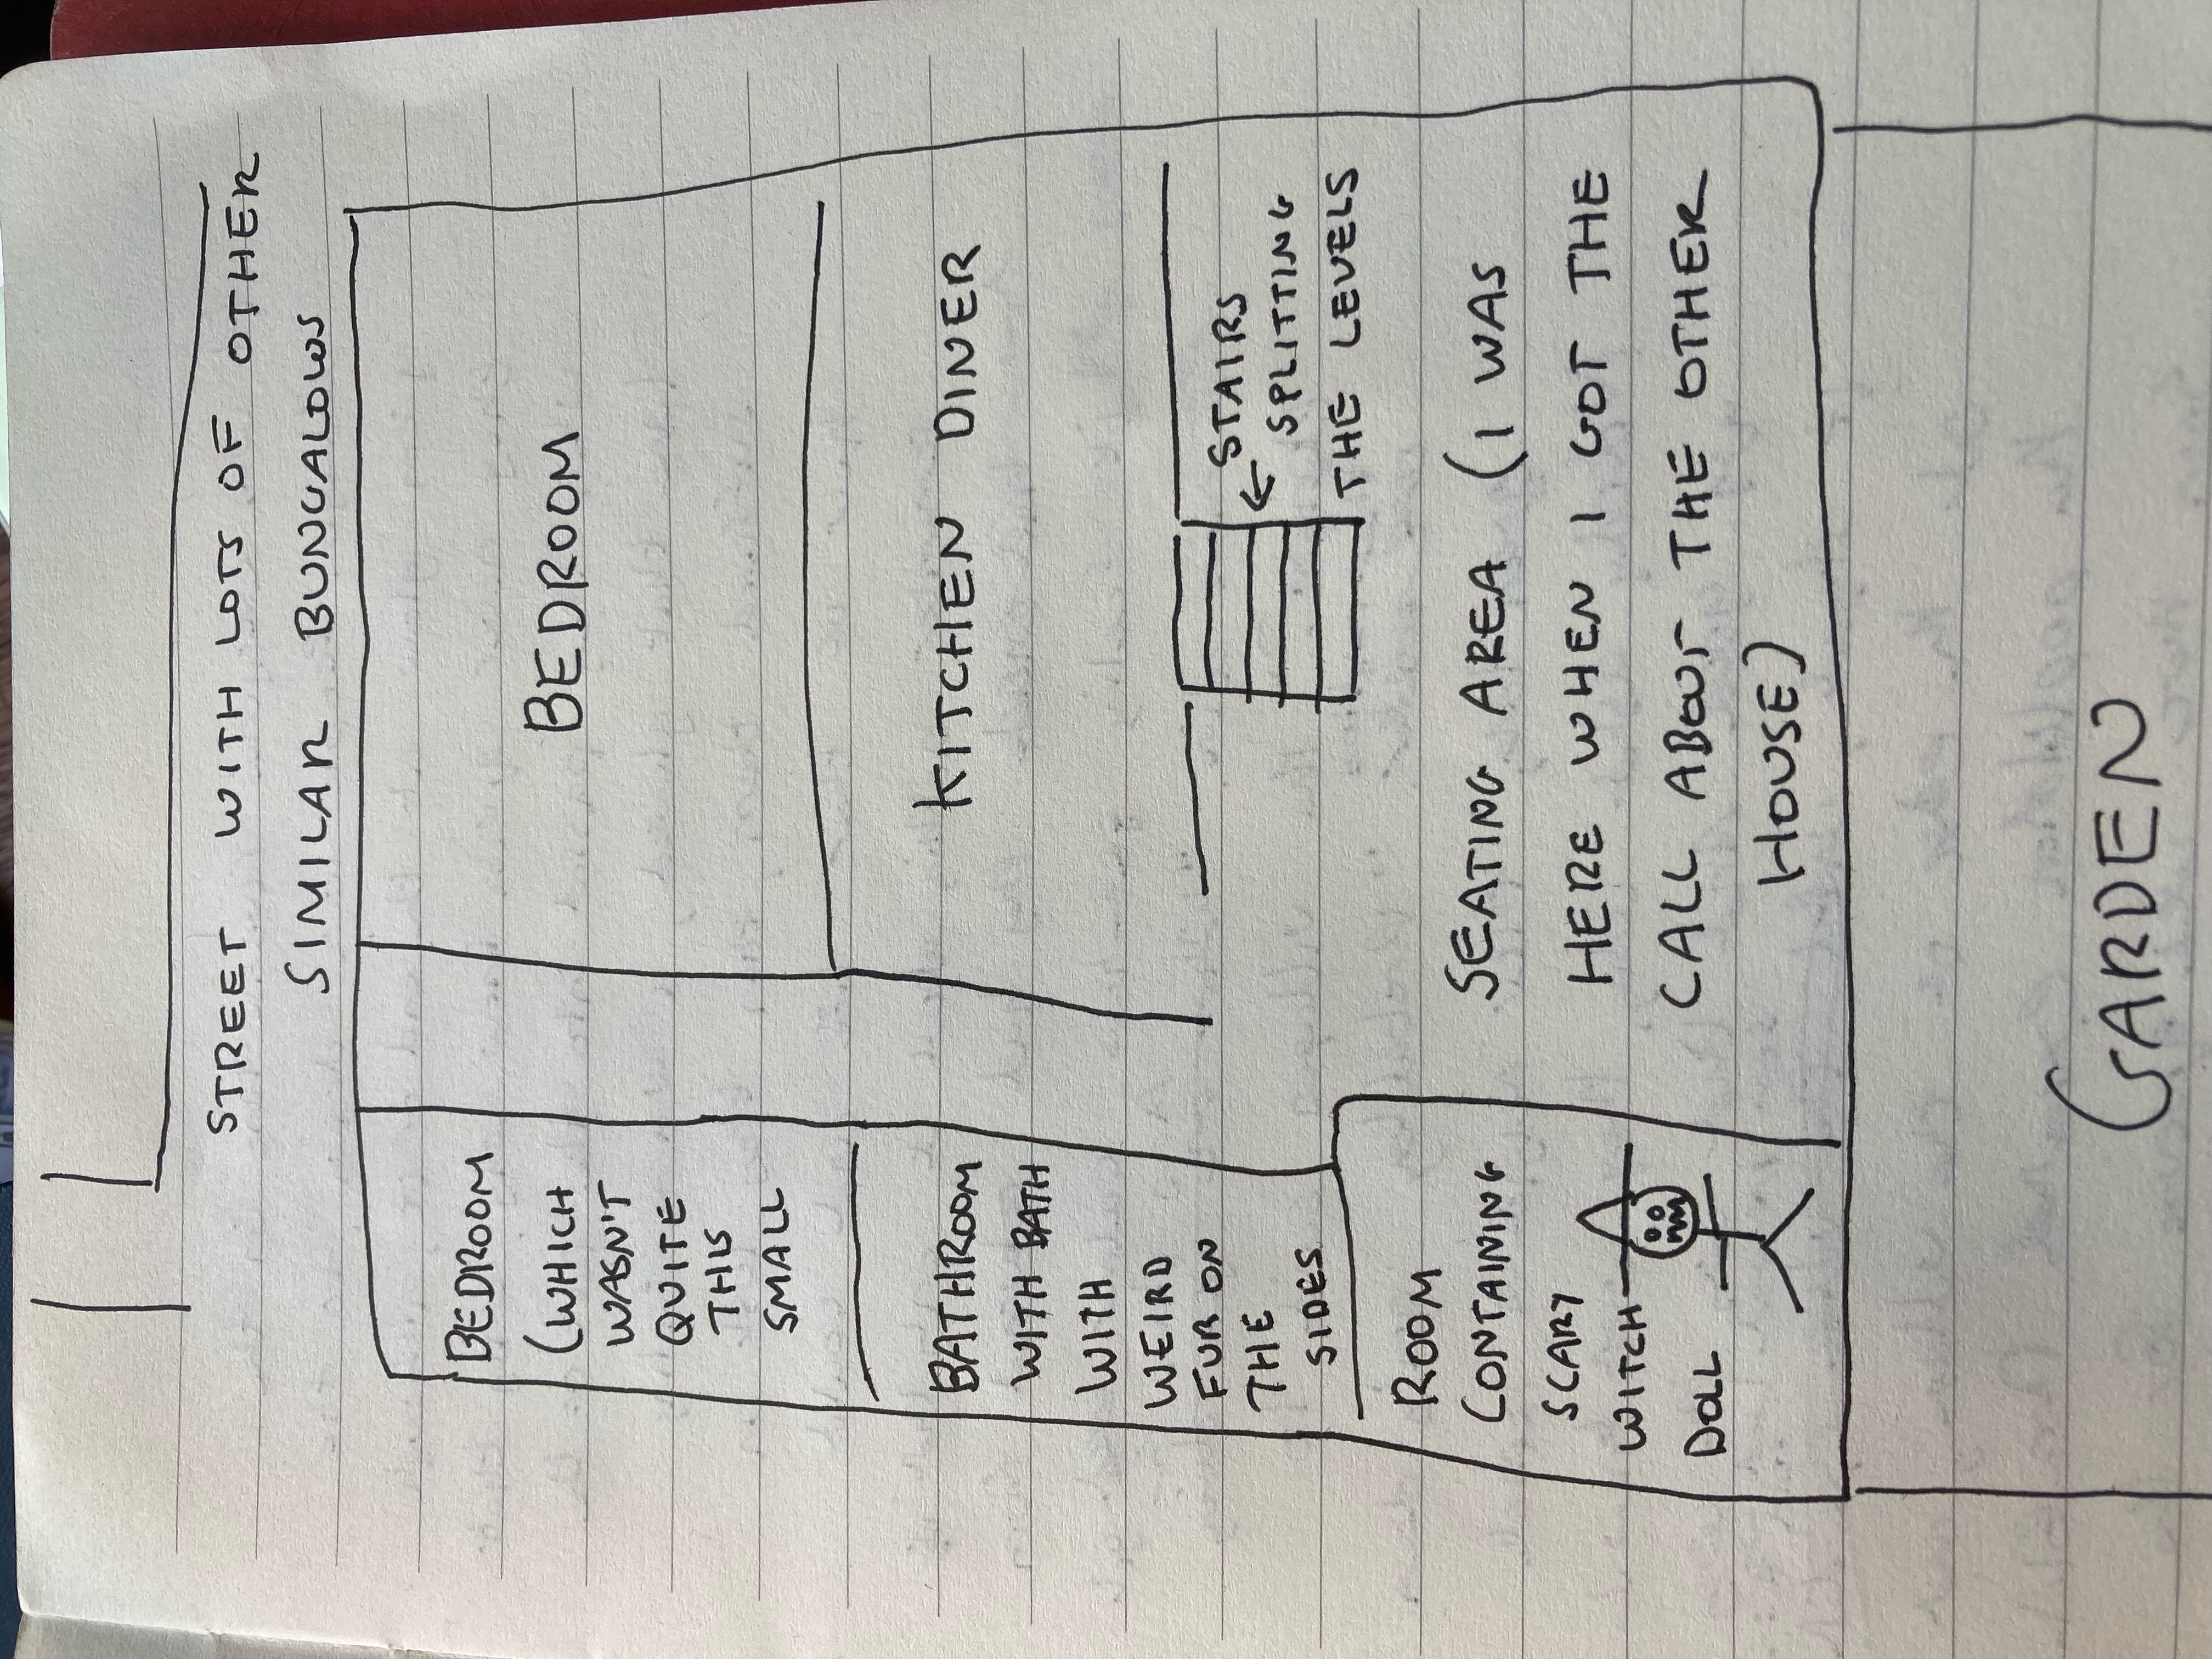 STREET WITH LOTS OF OTHER
SIMILAR BUNGALOWS
BEDROOM
(WHICH
WASN'T
QUITE
THIS
SMALL
BEDROOM
BATHROOM
WITH BATH
WITH
WEIRD
FUR ON
THE
SIDES
KITCHEN DINER
STAIRS
SPLITTING
THE LEVELS
ROOM
CONTAINING
SCARY
WITCH
DOLL
SEATING AREA (I WAS
HERE WHEN I GOT THE
CALL ABOUT THE OTHER
HOUSE)
GARDEN